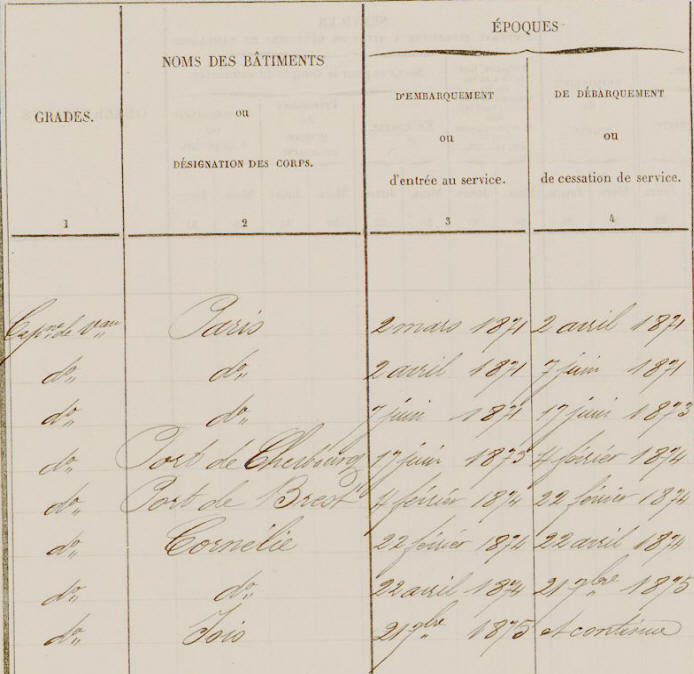 ÉPOQUES
NOMS DES BÂTIMENTS
D'EMBARQUEMENT DE DÉBARQUEMENT
GRADES. ou
ou ou
DÉSIGNATION DES CORPS.
d'entrée au service. de cessation de service.
1 2 3 4
Capne de Vau Paris 2 mars 1871 2 avril 1871
do do 2 avril 1871 7 juin 1871
do do 7 juin 1871 17 juin 1873
do Port de Cherbourg 17 juin 1873 4 février 1874
do Port de Brest 4 février 1874 22 février 1874
do Cornélie 22 février 1874 22 avril 1874
do do 22 avril 1874 21 7bre 1875
do 21 7bre 1875 et continue